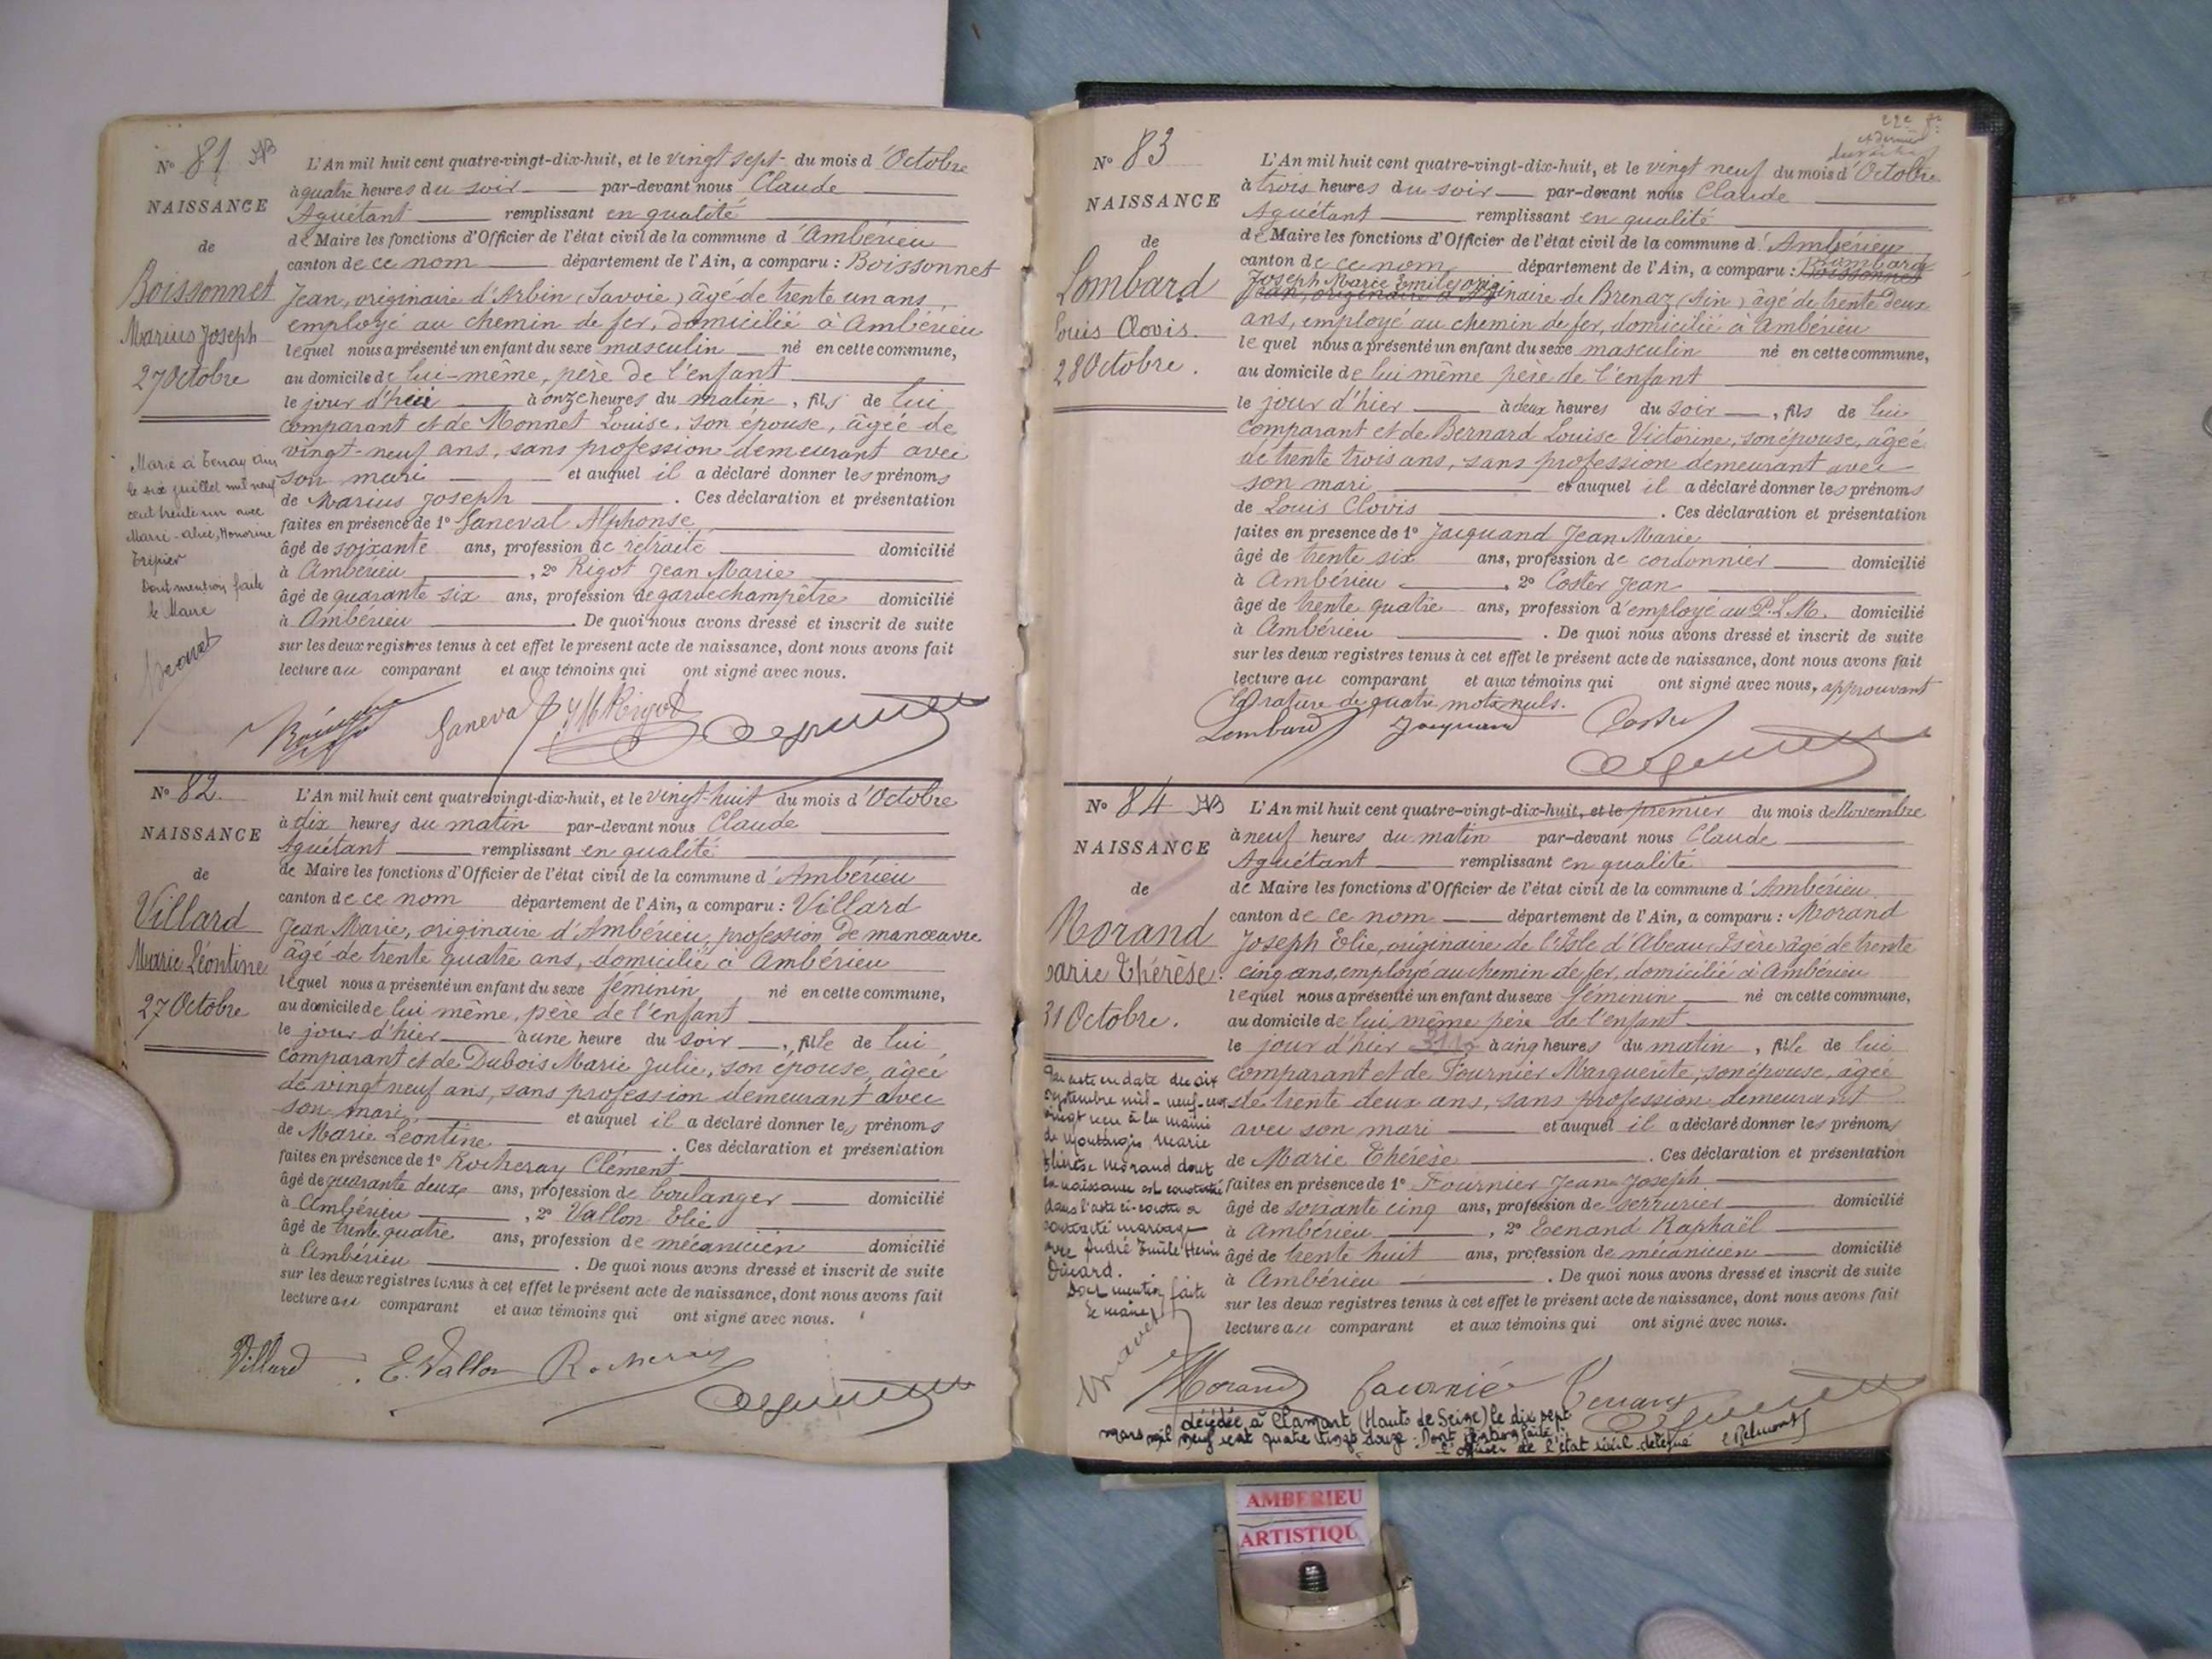 N° 81 NB
NAISSANCE
de
Boissonnet
Marius Joseph
27 Octobre
L'An mil huit cent quatre-vingt-dix-huit, et le vingt sept du mois d'Octobre
à quatre heures du soir par-devant nous Claude
Aguétant remplissant en qualité
de Maire les fonctions d'Officier de l'état civil de la commune d'Ambérieu
canton de ce nom département de l'Ain, a comparu : Boissonnet
Jean, originaire d'Arbin (Savoie) âgé de trente un ans,
employé au chemin de fer, domicilié à Ambérieu
lequel nous a présenté un enfant du sexe masculin né en cette commune,
au domicile de lui-même, père de l'enfant
le jour d'hui à onze heures du matin, fils de lui
comparant et de Monnet Louise, son épouse, âgée de
vingt-neuf ans, sans profession demeurant avec
son mari et auquel il a déclaré donner les prénoms
de Marius Joseph. Ces déclaration et présentation
faites en présence de 1° Janeval Alphonse
âgé de soixante ans, profession de retraité domicilié
à Ambérieu, 2° Rigot Jean Marie
âgé de quarante six ans, profession de garde champêtre domicilié
à Ambérieu. De quoi nous avons dressé et inscrit de suite
sur les deux registres tenus à cet effet le présent acte de naissance, dont nous avons fait
lecture au comparant et aux témoins qui ont signé avec nous.
Marié à Tenay Ain
le six juillet mil neuf
cent trente un avec
Marie-Alice, Honorine
Trépier
Dont mention faite
le Maire
Janeval JM Rigot
N° 82
NAISSANCE
de
Villard
Marie Léontine
27 Octobre
L'An mil huit cent quatre-vingt-dix-huit, et le vingt-huit du mois d'Octobre
à dix heures du matin par-devant nous Claude
Aguétant remplissant en qualité
de Maire les fonctions d'Officier de l'état civil de la commune d'Ambérieu
canton de ce nom département de l'Ain, a comparu : Villard
Jean Marie, originaire d'Ambérieu, profession de manœuvre
âgé de trente quatre ans, domicilié à Ambérieu
lequel nous a présenté un enfant du sexe féminin né en cette commune,
au domicile de lui même, père de l'enfant
le jour d'hier à une heure du soir, fille de lui
comparant et de Dubois Marie Julie, son épouse, âgée
de vingt neuf ans, sans profession demeurant avec
son mari, et auquel il a déclaré donner les prénoms
de Marie Léontine. Ces déclaration et présentation
faites en présence de 1° Rocheray Clément
âgé de quarante deux ans, profession de boulanger domicilié
à Ambérieu, 2° Vallon Elie
âgé de trente quatre ans, profession de mécanicien domicilié
à Ambérieu. De quoi nous avons dressé et inscrit de suite
sur les deux registres tenus à cet effet le présent acte de naissance, dont nous avons fait
lecture au comparant et aux témoins qui ont signé avec nous.
Villard E. Vallon Rocheray
22e
et dernier
N° 83
NAISSANCE
de
Lombard
Louis Clovis.
28 Octobre.
L'An mil huit cent quatre-vingt-dix-huit, et le vingt neuf du mois d'Octobre
à trois heures du soir par-devant nous Claude
Aguétant remplissant en qualité
de Maire les fonctions d'Officier de l'état civil de la commune d'Ambérieu
canton de ce nom département de l'Ain, a comparu : Boissonnet
Joseph Marie Emile, originaire de Brenaz (Ain) âgé de trente deux
ans, employé au chemin de fer, domicilié à Ambérieu
lequel nous a présenté un enfant du sexe masculin né en cette commune,
au domicile de lui même père de l'enfant
le jour d'hier à deux heures du soir, fils de lui
comparant et de Bernard Louise Victorine, son épouse, âgée
de trente trois ans, sans profession demeurant avec
son mari et auquel il a déclaré donner les prénoms
de Louis Clovis. Ces déclaration et présentation
faites en présence de 1° Jacquand Jean Marie
âgé de trente six ans, profession de cordonnier domicilié
à Ambérieu, 2° Coster Jean
âgé de trente quatre ans, profession d'employé au P.L.M. domicilié
à Ambérieu. De quoi nous avons dressé et inscrit de suite
sur les deux registres tenus à cet effet le présent acte de naissance, dont nous avons fait
lecture au comparant et aux témoins qui ont signé avec nous, approuvant
la rature de quatre mots nuls.
Lombard Jacquand Coster
N° 84 NB
NAISSANCE
de
Morand
Marie Thérèse.
31 Octobre.
L'An mil huit cent quatre-vingt-dix-huit, et le premier du mois de Novembre
à neuf heures du matin par-devant nous Claude
Aguétant remplissant en qualité
de Maire les fonctions d'Officier de l'état civil de la commune d'Ambérieu
canton de ce nom département de l'Ain, a comparu : Morand
Joseph Elie, originaire de l'Isle d'Abeau (Isère) âgé de trente
cinq ans, employé au chemin de fer, domicilié à Ambérieu
lequel nous a présenté un enfant du sexe féminin né en cette commune,
au domicile de lui même père de l'enfant
le jour d'hier à cinq heures du matin, fille de lui
comparant et de Fournier Marguerite, son épouse, âgée
de trente deux ans, sans profession demeurant
avec son mari et auquel il a déclaré donner les prénoms
de Marie Thérèse. Ces déclaration et présentation
faites en présence de 1° Fournier Jean Joseph
âgé de soixante cinq ans, profession de serrurier domicilié
à Ambérieu, 2° Tenand Raphaël
âgé de trente huit ans, profession de mécanicien domicilié
à Ambérieu. De quoi nous avons dressé et inscrit de suite
sur les deux registres tenus à cet effet le présent acte de naissance, dont nous avons fait
lecture au comparant et aux témoins qui ont signé avec nous.
Par acte en date du six
septembre mil-neuf-cent
vingt reçu à la mairie
de Montargis, Marie
Thérèse Morand dont
la naissance est constatée
dans l'acte ci-contre a
contracté mariage
avec André Emile Henri
Dont mention faite
le maire
Morand Fournié Tenand
décédée à Clamart (Hauts de Seine) le dix sept
mars mil neuf cent quatre vingt douze. Dont mention faite
l'officier de l'état civil délégué
AMBERIEU
ARTISTIQU